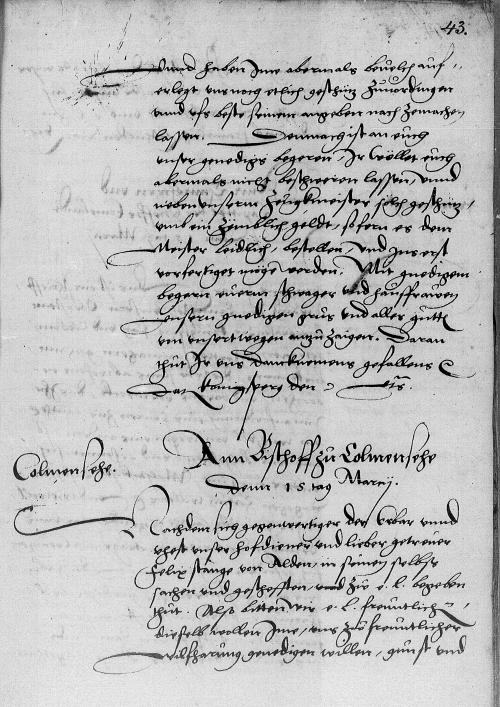 43.
vnnd haben Ime abermals beuelch auf-
erlegt vns noch etlich geschutz Zuuordingen
vnnd vfs beste seinem angeben nach Zemachen
lassen. Demnach ist an euch
vnser genedigs begeren, Ir wöllet euch
abermals nicht beschweren lassen, vnnd
neben vnserm Zeugkmeister solch geschutz,
vmb ein Zymblich geldt, so fern es dem
Meister leidlich, bestellen, vnd Ins erst
vorfertiget möge werden. Mit gnedigem
begern euerm schwager vnd hausfrauen
vnsern gnedigen grus vnd alles gutts
von vnsert wegen antzuzaigen. Daran
thut Ir vns dancknemens gefallens
Dat. Königsperg den
Ann Bischoff zu Colmensehe
denn 15 tag Marcij.
Colmensehe.
Nachdem sich gegenwertiger der Erbar vnnd
vhest vnser hofdiener vnd lieber getreuer
Felix stange von Alden, in seinen selbst
sachen vnd geschefften, vnd zu e. l. begeben
thut. Also bitten wir e. l. freuntlich,
dieselb wollen Ime, vns zu freuntlicher
wilfharung genedigen willen, gunst vnd